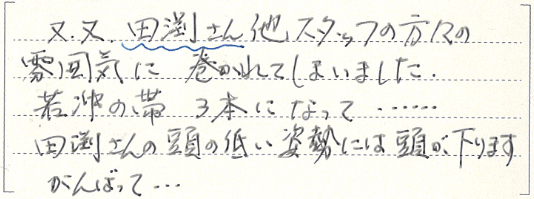 又.又.田渕さん他スタッフの方々の
雰囲気に 巻かれてしまいました.
若冲の帯 3本になって……
田渕さんの頭の低い姿勢には頭が下ります
がんばって…